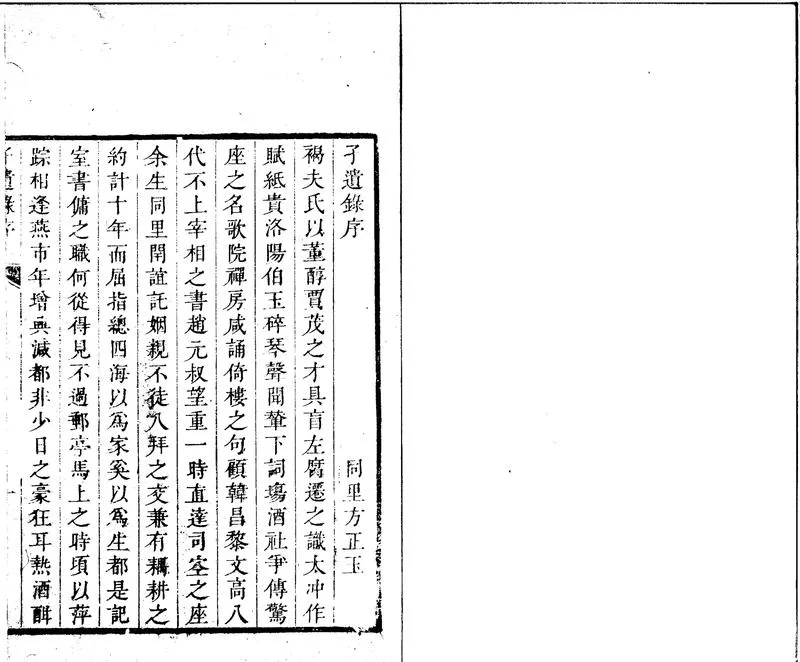 孑遺錄序
同里方正玉
褐夫氏以董醇賈茂之才具盲左腐遷之識太冲作
賦紙貴洛陽伯玉碎琴聲聞輦下詞塲酒社爭傳驚
座之名歌院禪房咸誦倚樓之句顧韓昌黎文高八
代不上宰相之書趙元叔望重一時直達司空之座
余生同里閈誼託姻親不徒八拜之交兼有耦耕之
約計十年而屈指總四海以爲家奚以爲生都是記
室書傭之職何從得見不過郵亭馬上之時頃以萍
踪相逢燕市年增興減都非少日之豪狂耳熱酒酣
孑遺錄序
一